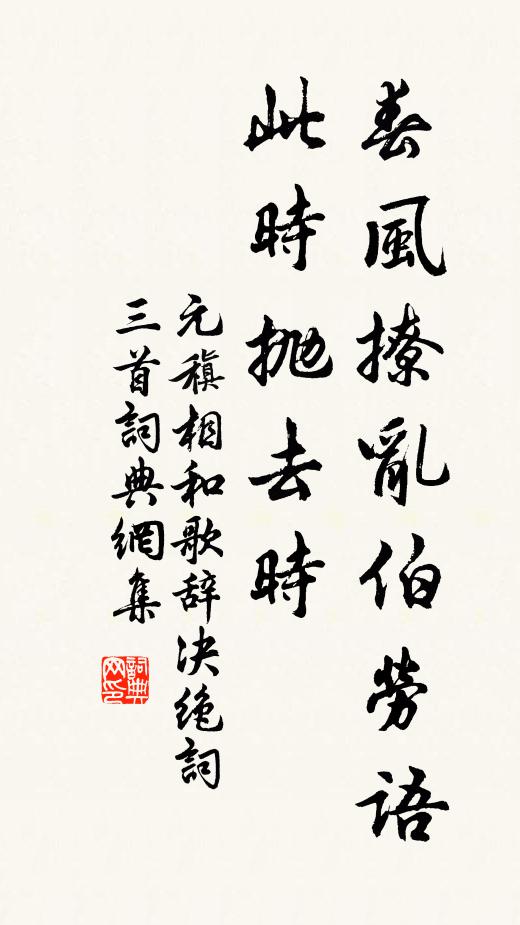 春風撩亂伯勞語
此時拋去時
元稹相和歌辞決絶詞
三首詞典網集
詞典網印